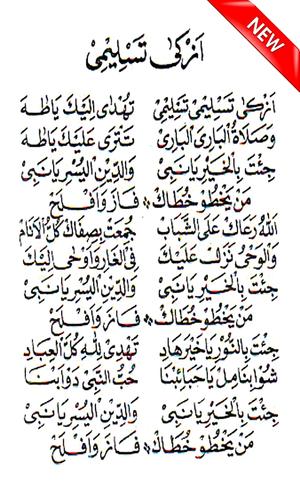 NEW
اَزْكَى تَسْلِيْمِيْ
اَزْكَى تَسْلِيْمِى تَنْغِيْمِى تُهْدَى اِلَيْكَ يَاطٰهَ
وَصَلَاةُ الْبَارِى الْبَارِى تَتْرَى عَلَيْكَ يَاطٰهَ
جِئْتَ بِالْخَيْرِ يَانَبِى وَالدِّيْنِ الْيُسْرِ يَانَبِى
مَنْ يَخْطُوْ خُطَاكَ فَازَ وَاَفْلَحَ
اللهُ رَعَاكَ عَلَى الشَّبَابِ جُمِعَتْ بِصِفَاكَ كُلُّ الْاَنَامِ
وَالْوَحْيُ نَزَلَ عَلَيْكَ فِى الْغَارِ وَاَوْحَى اِلَيْكَ
جِئْتَ بِالْخَيْرِ يَانَبِى وَالدِّيْنِ الْيُسْرِ يَانَبِى
مَنْ يَخْطُوْ خُطَاكَ فَازَ وَاَفْلَحَ
جِئْتَ بِالنُّوْرِ يَاخَيْرَ هَادٍ تَهْدِى لِلّٰهِ كُلَّ الْعِبَادِ
حُبُّ النَّبِى دَوَا
جِئْتَ بِالْخَيْرِ يَانَبِى وَالدِّيْنِ الْيُسْرِ يَانَبِى
مَنْ يَخْطُوْ خُطَاكَ فَازَ وَاَفْلَحَ